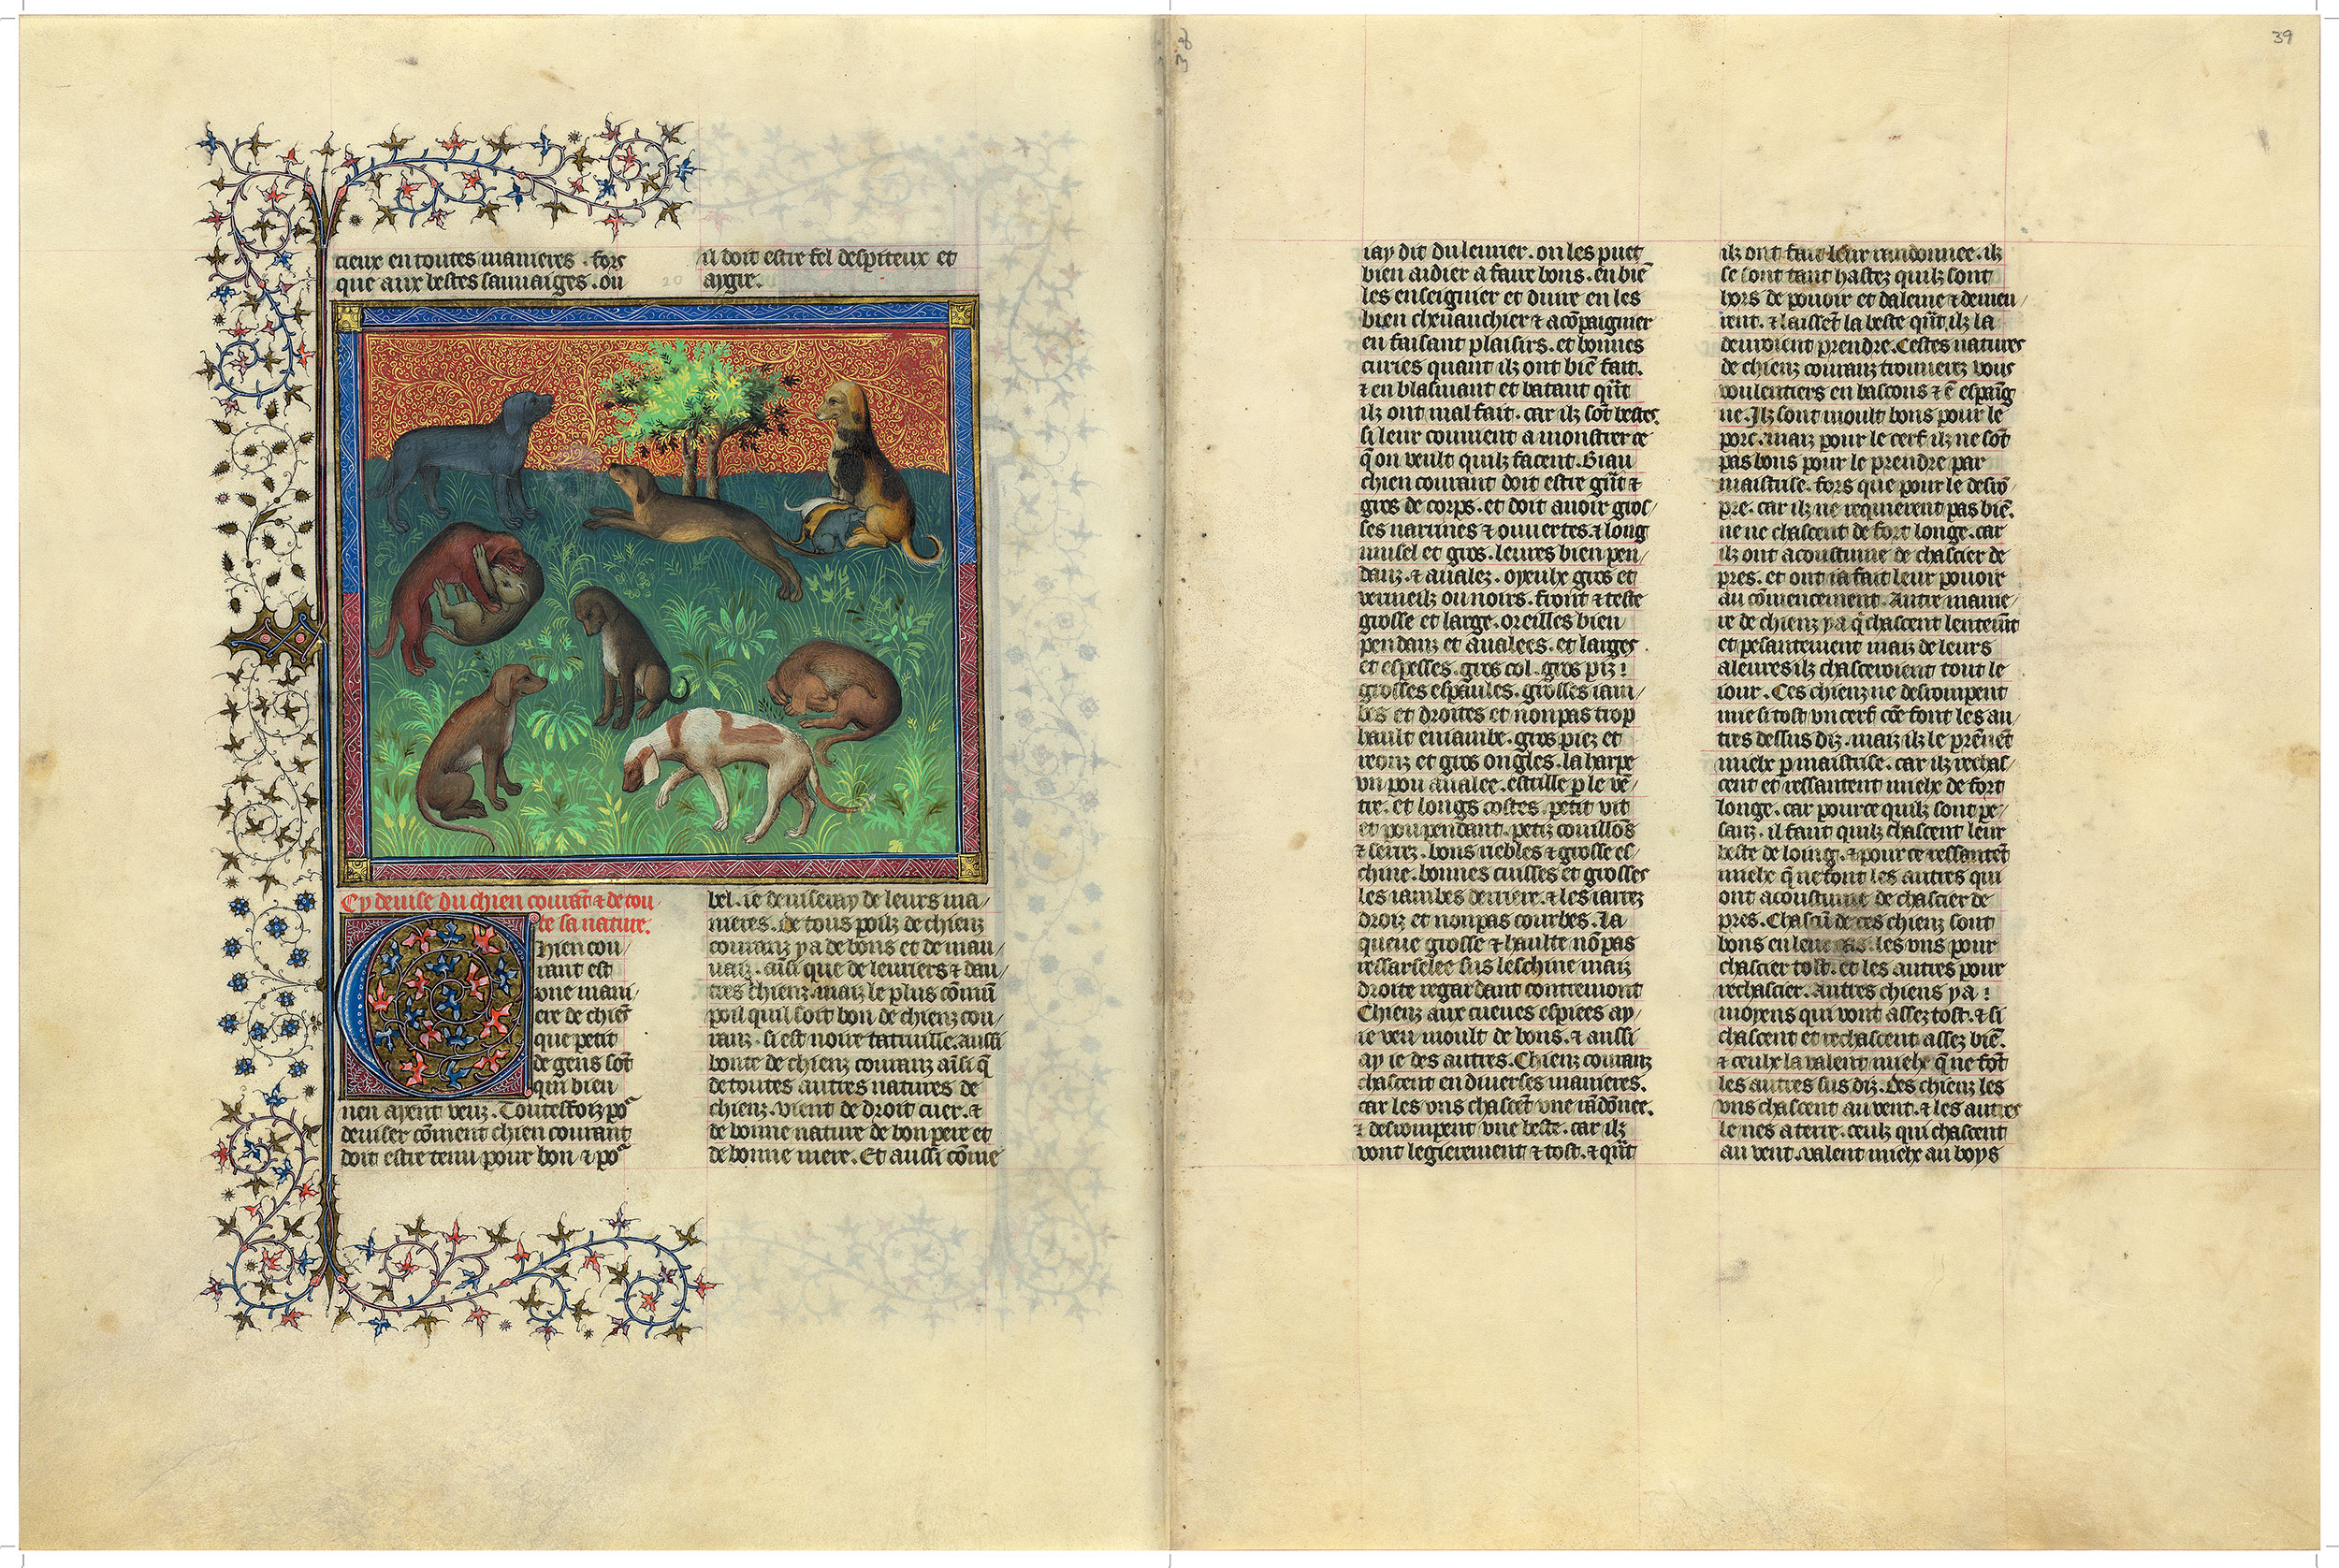 cieux en toutes manieres . fors
que aux bestes sauuaiges . ou
il doit estre fel despiteux et
aygre.
Cy deuise du chien courāt & de tou
te sa nature.
Chien cou
rant est
vne mani
ere de chiēs
que petit
de gens sōt
qui bien
nen ayent veuz . Toutesfoiz po
deuiser cōment chien courant
doit estre tenu pour bon & po
bel . ie deuiseray de leurs ma
nieres. De tous poilz de chienz
couranz ya de bons et de mau
uaiz . aīsi que de leuriers & dau
tres chienz . maiz le plus cōmū
poil qui soit bon de chienz cou
ranz . si est noire tatruille. aussi
bonte de chienz couranz aīsi q̄
de toutes autres natures de
chienz . vient de droit cuer . &
de bonne nature de bon pere et
de bonne mere. Et aussi cōme
38
39
iay dit du leurier . on les puet
bien aidier a faire bons . en biē
les enseigner et duire en les
bien cheuauchier & acōpaignier
en faisant plaisirs . et bonnes
curies quant ilz ont biē fait.
& en blasmant et batant qūt
ilz ont mal fait . car ilz sōt bestes.
si leur conuient a monstrer ce
q̄ on veult quilz facent . Biau
chien courant doit estre gūt &
gros de corps . et doit auoir gros
ses narines & ouuertes . & long
musel et gros . leures bien pen
danz . & aualez . oyeulx gros et
vermeilz ou noirs . front & teste
grosse et large . oreilles bien
pendanz et aualees . et larges
et espesses . gros col . gros piz !
grosses espaules . grosses iam
bes et droites et non pas trop
hault eniambe . gros piez et
reonz et gros ongles . la harpe
vn pou aualee . estille p le vē
tre . et longs costes . petit vit
et pou pendant . petiz couillōs
& serrez . bons rebles & grosse es
chine . bonnes cuisses et grosses
les iambes derriere . & les iarrez
droiz et non pas courbes . La
queue grosse & haulte nō pas
resserselee sus leschine maiz
droite regardant contremont
Chienz aux cueues espiees ay
ie veu moult de bons . & aussi
ay ie des autres . Chienz couranz
chascent en diuerses manieres.
car les vns chascēt vne rādōnee.
& desrompent vne beste . car ilz
vont legierement & tost . & qūt
ilz ont fait leur randonnee . ilz
se sont tant hastez quilz sont
hors de pouoir et daleine & demeu
rent . & laissēt la beste qūt ilz la
deuroient prendre . Cestes natures
de chienz couranz trouuerez vous
voulentiers en bascons & ē espaig
ne . Ilz sont moult bons pour le
porc . maiz pour le cerf ilz ne sōt
pas bons pour le prendre par
maistrise . fors que pour le desrō
pre . car ilz ne requierent pas biē.
ne ne chascent de fort longe . car
ilz ont acoustume de chascier de
pres . et ont ia fait leur pouoir
au cōmencement . Autre manie
re de chienz ya q̄ chascent lentemēt
et pesantement maiz de leurs
aleures ilz chasceroient tout le
iour . Ces chienz ne desrompent
mie si tost vn cerf cōe font les au
tres dessus diz . maiz ilz le prēnēt
mielx p maistrise . car ilz rechas
cent et ressantent mielx de fort
longe . car pource quilz sont pe
sanz . il faut quilz chascent leur
beste de loing . & pour ce ressantēt
mielx q̄ ne font les autres qui
ont acoustume de chascier de
pres . Chascū de ces chienz sont
bons en leur cas . les vns pour
chascier tost . et les autres pour
rechascier . Autres chiens ya !
moyens qui vont assez tost . & si
chascent et rechascent assez biē.
& ceulx la valent mielx q̄ ne fōt
les autres sus diz . Des chienz les
vns chascent au vent . & les autres
le nes a terre . ceulz qui chascent
au vent . valent mielx au boys